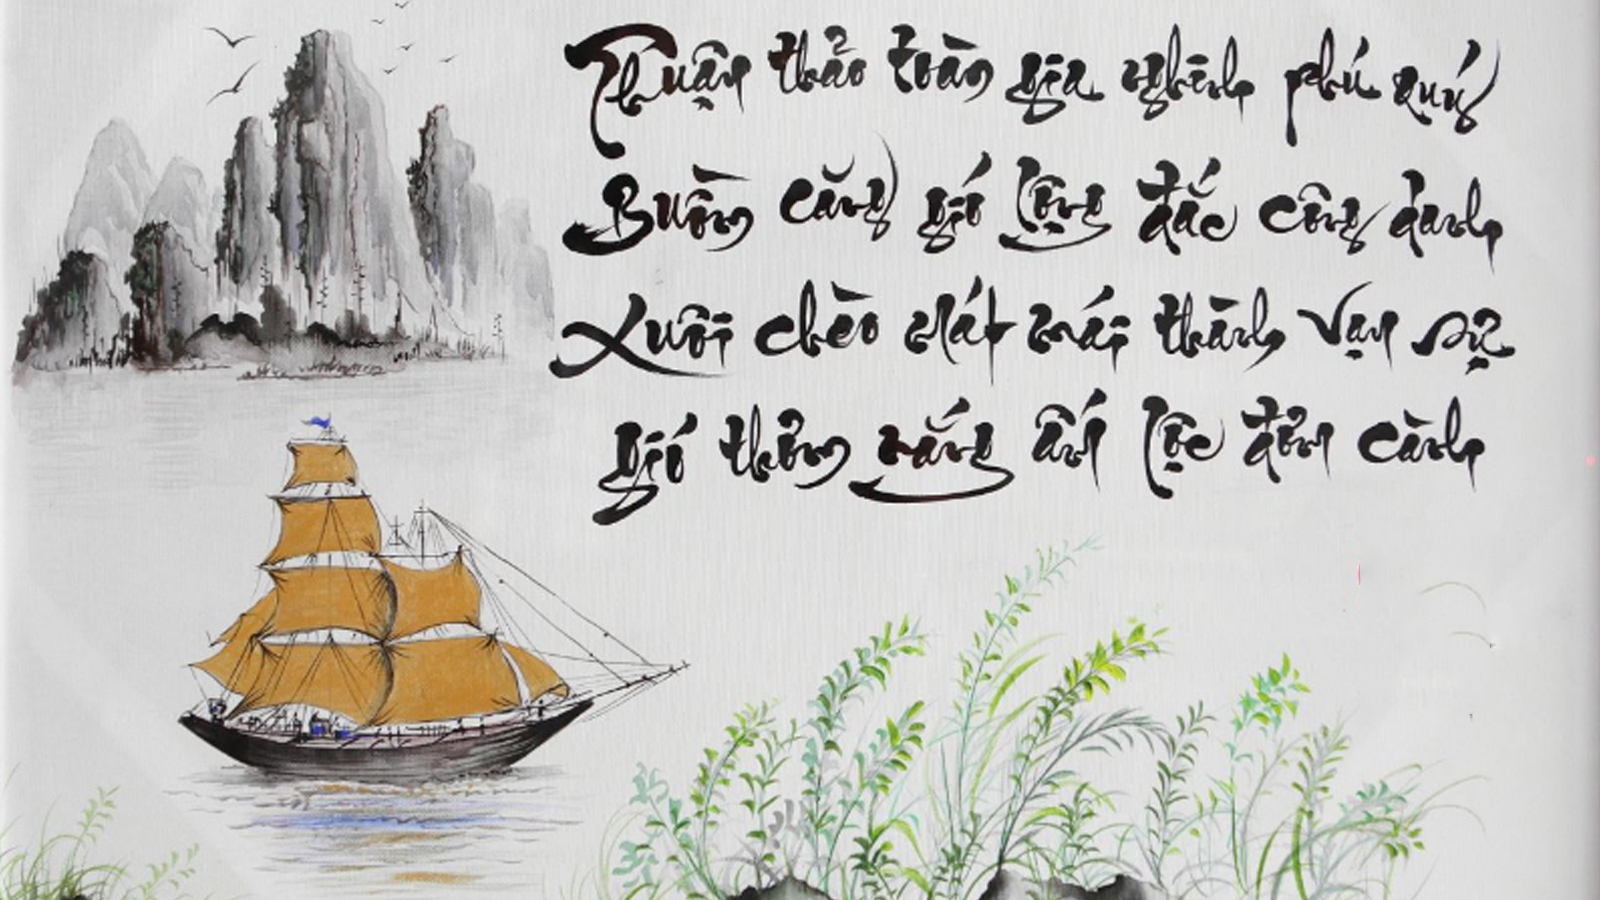 Thuận thảo toàn gia nghinh phú quý
Buồm căng gió lộng đắc công danh
Xuôi chèo mát mái thành vạn sự
gió thổi nắng ấm lộc đơm cành